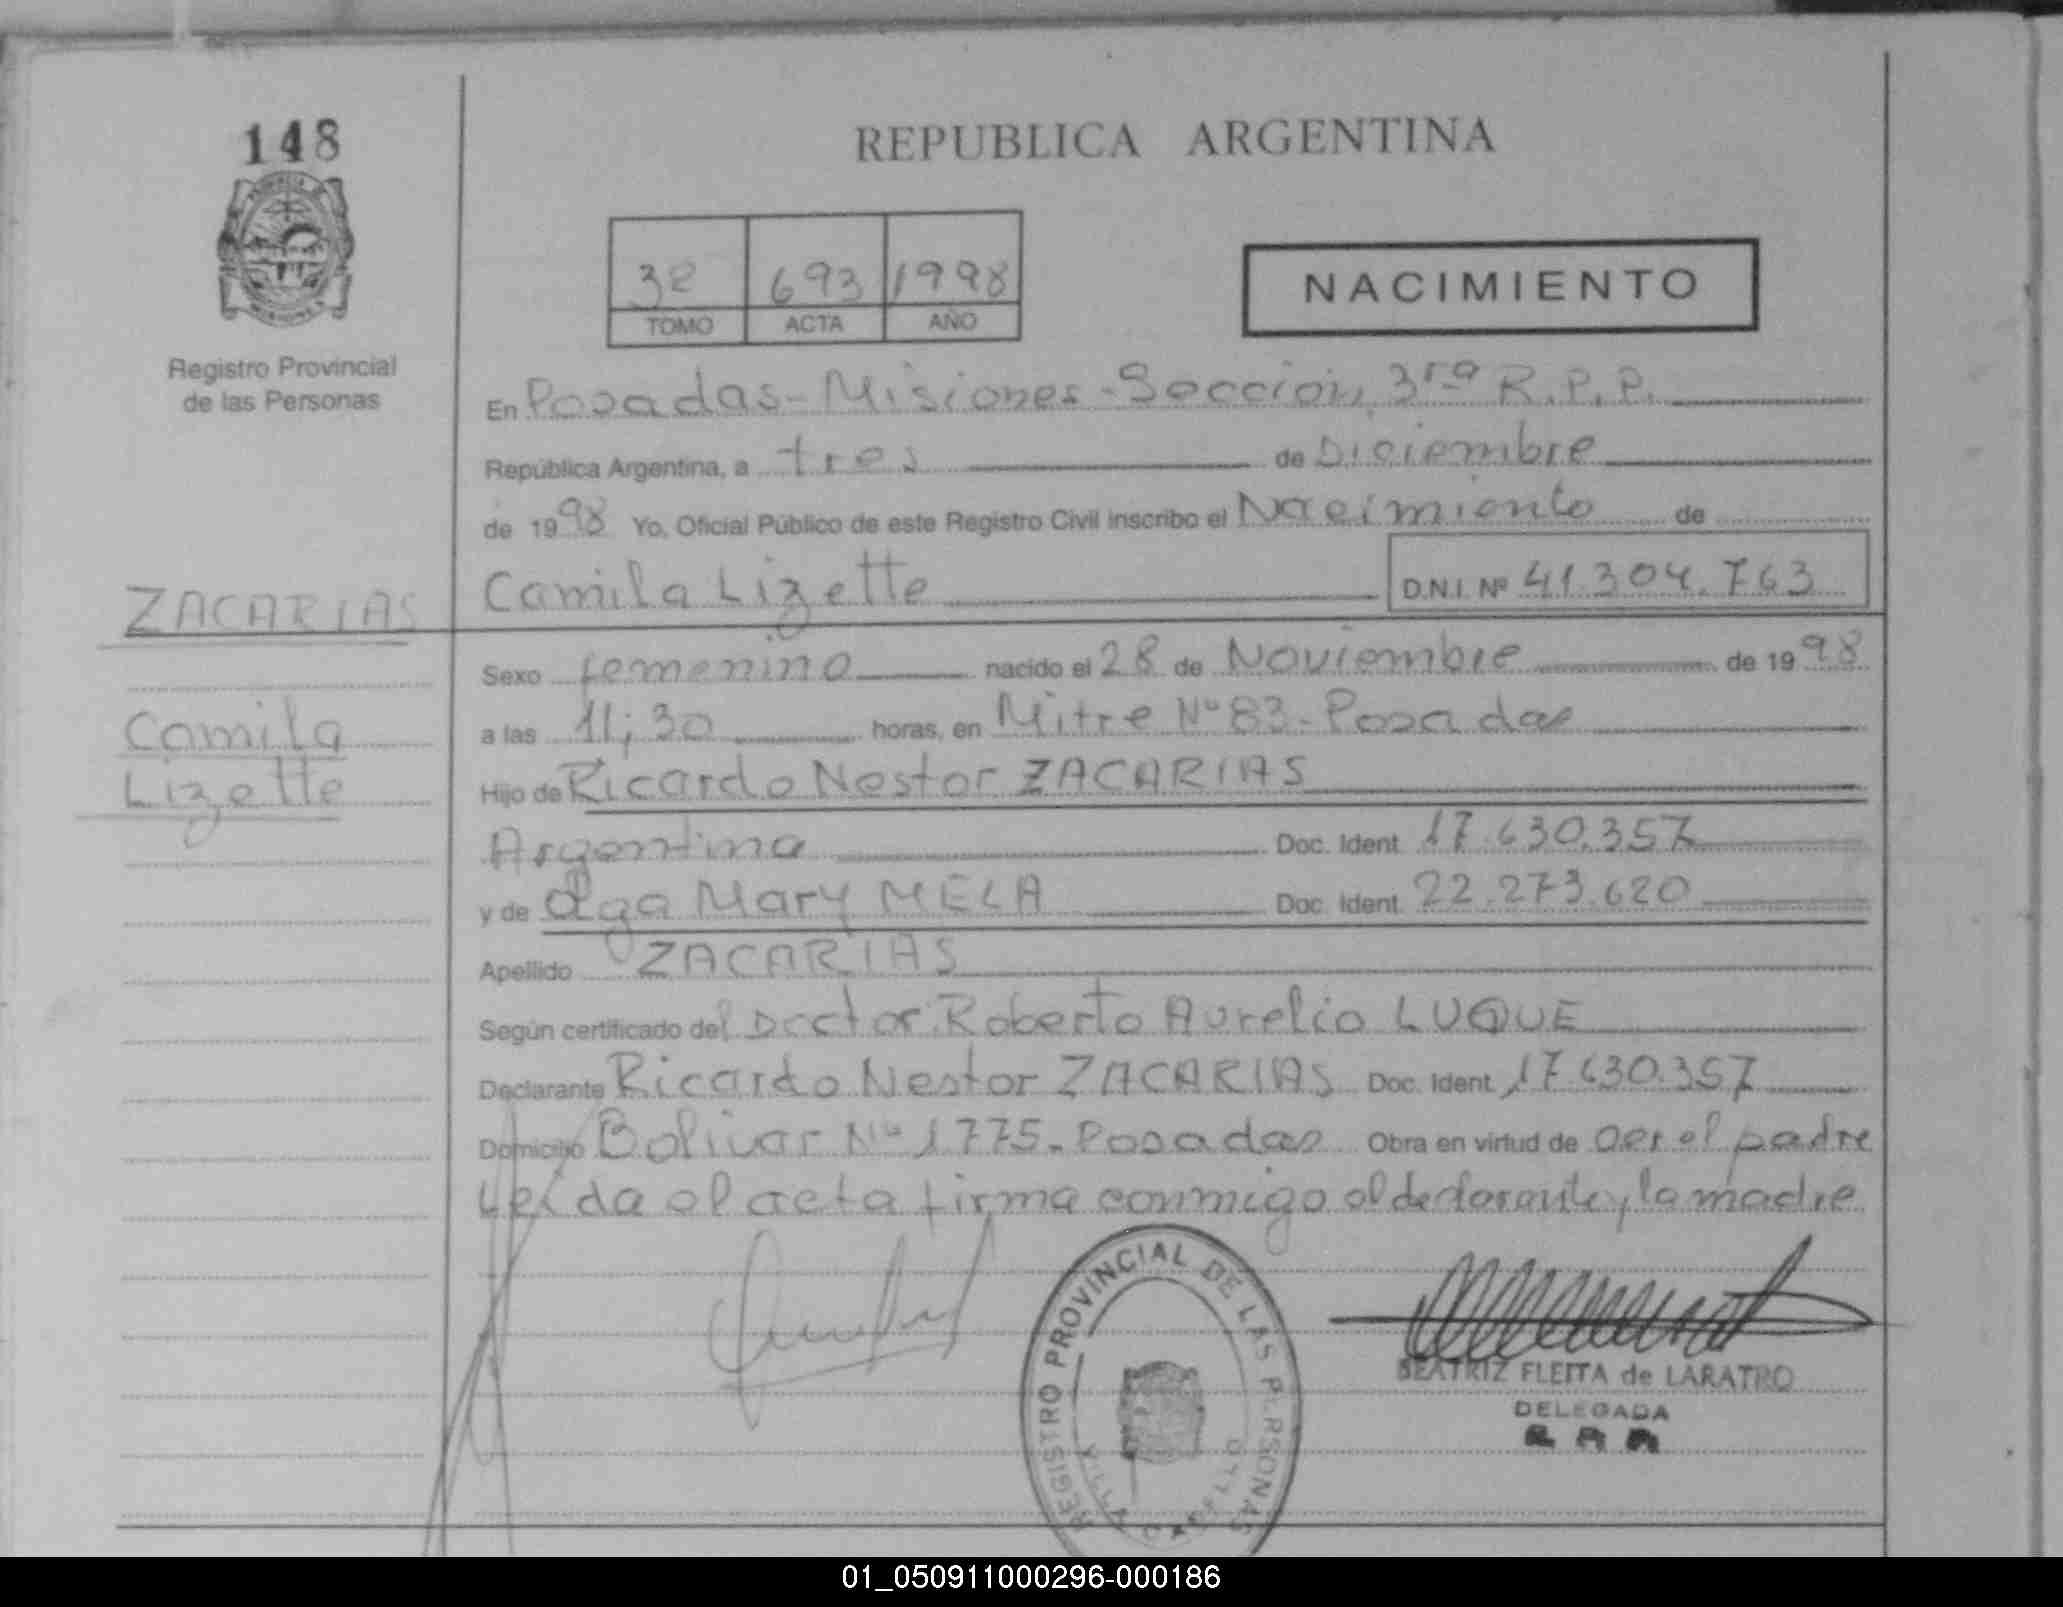 148
REPUBLICA ARGENTINA
3º 693 1998
TOMO ACTA AÑO
NACIMIENTO
Registro Provincial
de las Personas
En Posadas - Misiones - Sección 3ra R.P.P.
República Argentina, a tres de Diciembre
de 1998 Yo, Oficial Público de este Registro Civil inscribo el Nacimiento de
Camila Lizette D.N.I. Nº 41.304.763
ZACARIAS
Camila
Lizette
Sexo femenino nacido el 28 de Noviembre de 1998
a las 11;30 horas, en Mitre Nº 83 - Posadas
Hijo de Ricardo Nestor ZACARIAS
Argentina Doc. Ident. 17.630.357
y de Olga Mary MELA Doc. Ident. 22.273.620
Apellido ZACARIAS
Según certificado del Doctor Roberto Aurelio LUQUE
Declarante Ricardo Nestor ZACARIAS Doc. Ident. 17.630.357
Domicilio Bolivar Nº 1775 - Posadas Obra en virtud de ser el padre
Leída el acta firma conmigo el declarante y la madre
REGISTRO PROVINCIAL DE LAS PERSONAS
VILLA
BEATRIZ FLEITA de LARATRO
DELEGADA
01_050911000296-000186